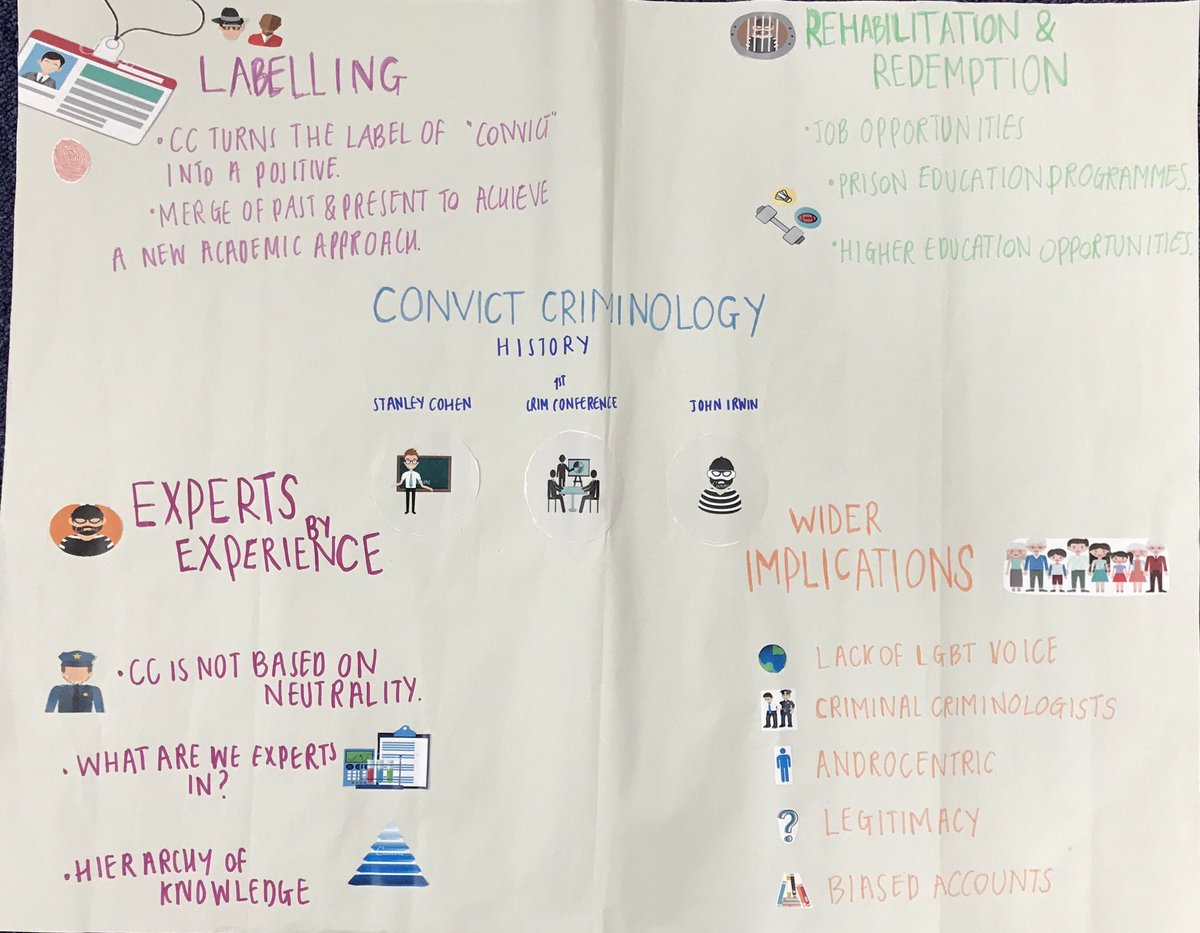 LABELLING
• CC TURNS THE LABEL OF "CONVICT"
INTO A POSITIVE.
• MERGE OF PAST & PRESENT TO ACHIEVE
A NEW ACADEMIC APPROACH.
REHABILITATION &
REDEMPTION
• JOB OPPORTUNITIES
• PRISON EDUCATION PROGRAMMES.
• HIGHER EDUCATION OPPORTUNITIES.
CONVICT CRIMINOLOGY
HISTORY
STANLEY COHEN
1ST
CRIM CONFERENCE
JOHN IRWIN
EXPERTS
BY
EXPERIENCE
• CC IS NOT BASED ON
NEUTRALITY.
• WHAT ARE WE EXPERTS
IN?
• HIERARCHY OF
KNOWLEDGE
WIDER
IMPLICATIONS
LACK OF LGBT VOICE
CRIMINAL CRIMINOLOGISTS
ANDROCENTRIC
?
LEGITIMACY
BIASED ACCOUNTS